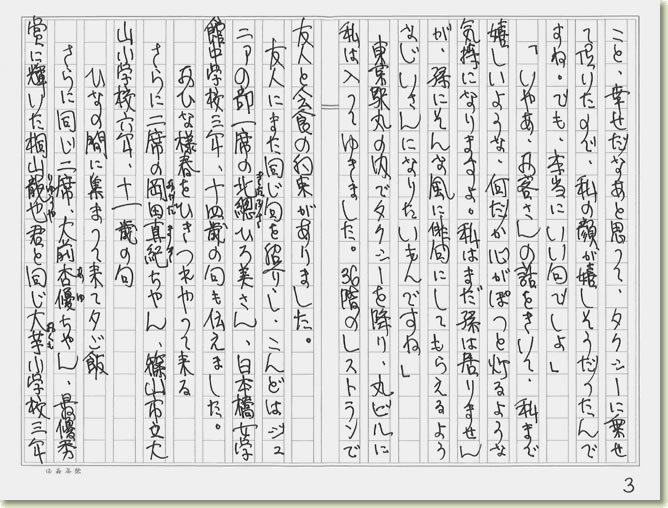 こと、幸せだなあと思って、タクシーに乗せ
て頂いたので、私の顔が嬉しそうだったんで
すね。でも、本当にいい句でしょ」
「いやあ、お客さんの話をきいて、私まで
嬉しいような、何だが心がぽっと灯るような
気持になりますよ。私はまだ孫は居りません
が、孫にそんな風に俳句にしてもらえるよう
なじいさんになりたいもんですね」
東京駅丸の内でタクシーを降り、丸ビルに
私は入ってゆきました。36階のレストランで
友人と会食の約束がありました。
友人にまた同じ句を繰りし、こんどはジュ
ニアの部一席の北總ひろ美さん、日本橋女学
館中学校三年、十四歳の句も伝えました。
おひな様春をひきつれやって来る
さらに二席の岡田真紀ちゃん、篠山市立大
山小学校六年、十一歳の句
ひなの間に集まって来て夕ご飯
さらに同じ二席、大前杏優ちゃん、最優秀
賞に輝いた桐山龍也君と同じ大芋小学校三年
3